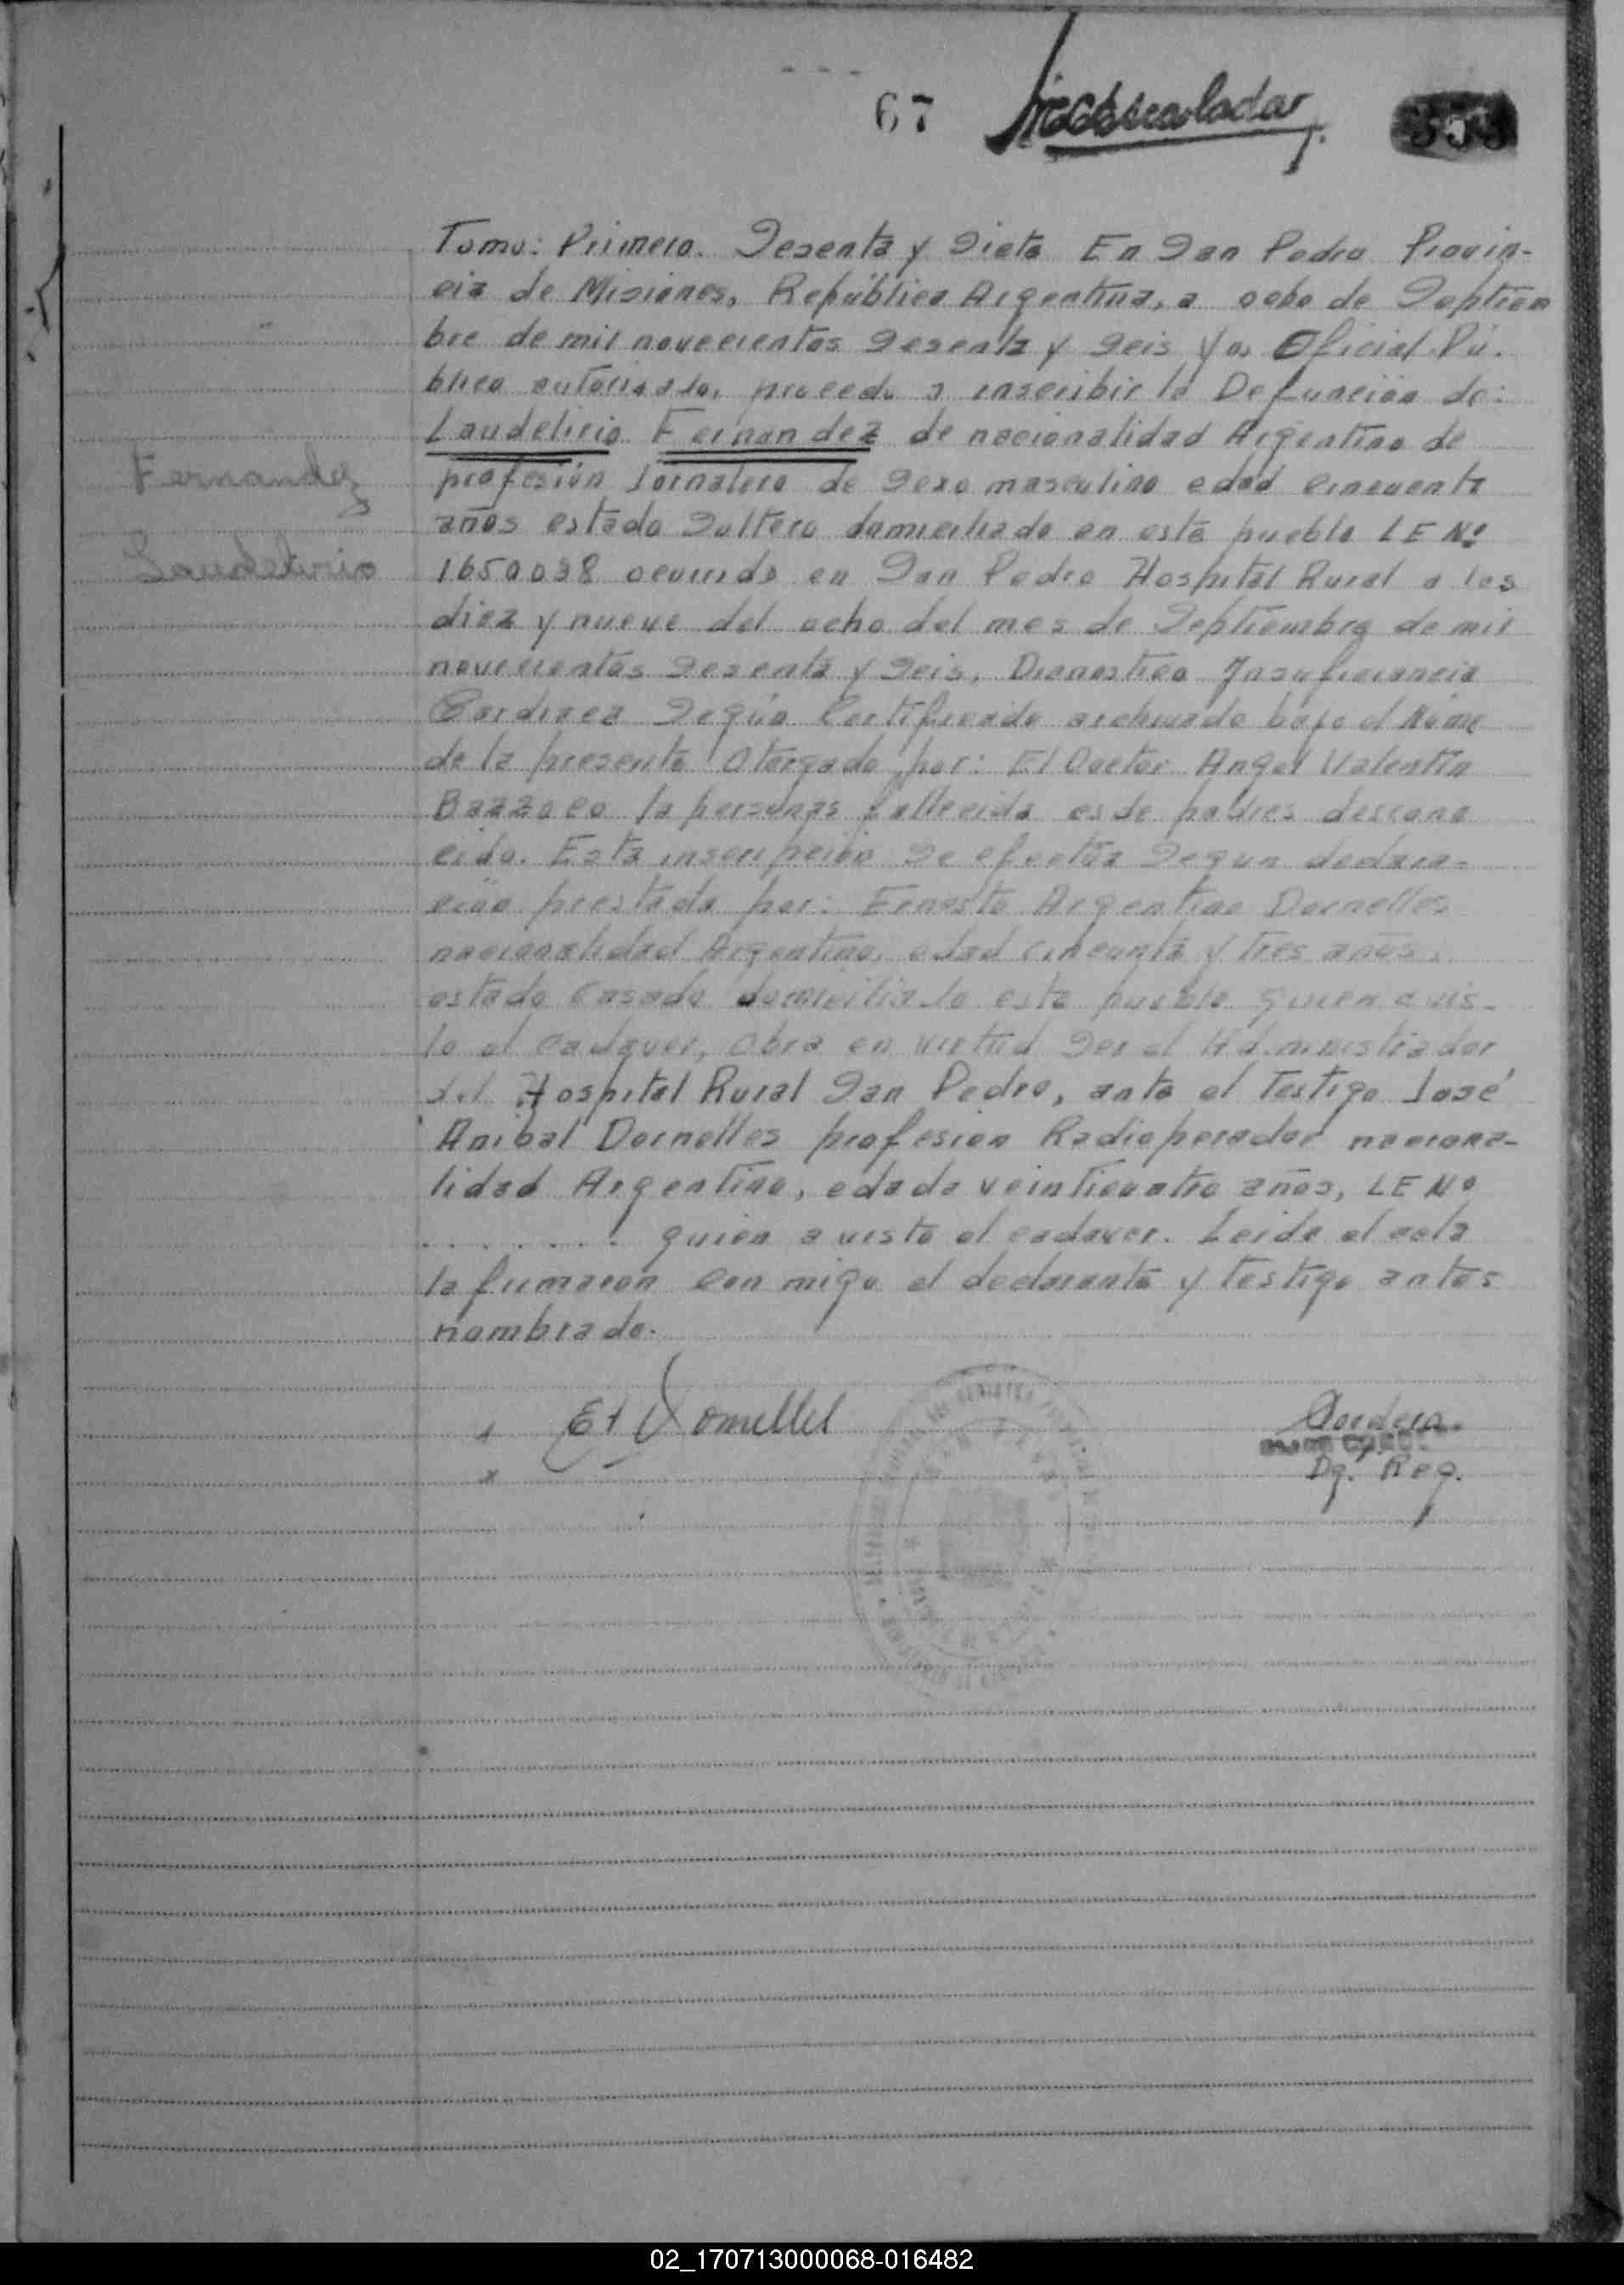 67
353
Tomo: Primero. Sesenta y Siete En San Pedro Provin-
cia de Misiones, República Argentina, a ocho de Septiem
bre de mil novecientos Sesenta y Seis Yo, Oficial Pú.
blico autorisado, procedo a inscribir la Defunción de:
Laudelirio Fernandez de nacionalidad Argentino de
Fernandez
profesión Jornalero de Sexo masculino edad cincuenta
años estado Soltero domiciliado en este pueblo LE Nº
Laudelirio
1650038 ocurrido en San Pedro Hospital Rural a las
diez y nueve del ocho del mes de Septiembre de mil
novecientos Sesenta y Seis, Dianostico Insuficiencia
Cardiaca Según Certificado archivado bajo el Núme
de la presente Otorgado por: El Doctor Angel Valentin
la personas fallecida es de padres descono
cido. Esta inscripción Se efectúa Segun declara-
ción prestada por: Ernesto Argentino Dornelles
nacionalidad Argentino, edad cincuenta y tres años,
estado Casado domiciliado este pueblo quien a vis-
to el cadaver, Obra en virtud Ser el Administrador
del Hospital Rural San Pedro, ante el Testigo José
Anibal Dornelles profesion Radioperador naciona-
lidad Argentino, edada veinticuatro años, LE Nº
......... quien a visto el cadaver. Leida el acta
la firmaron con migo el declarante y testigo antes
nombrado.
Dg. Reg.
02_170713000068-016482